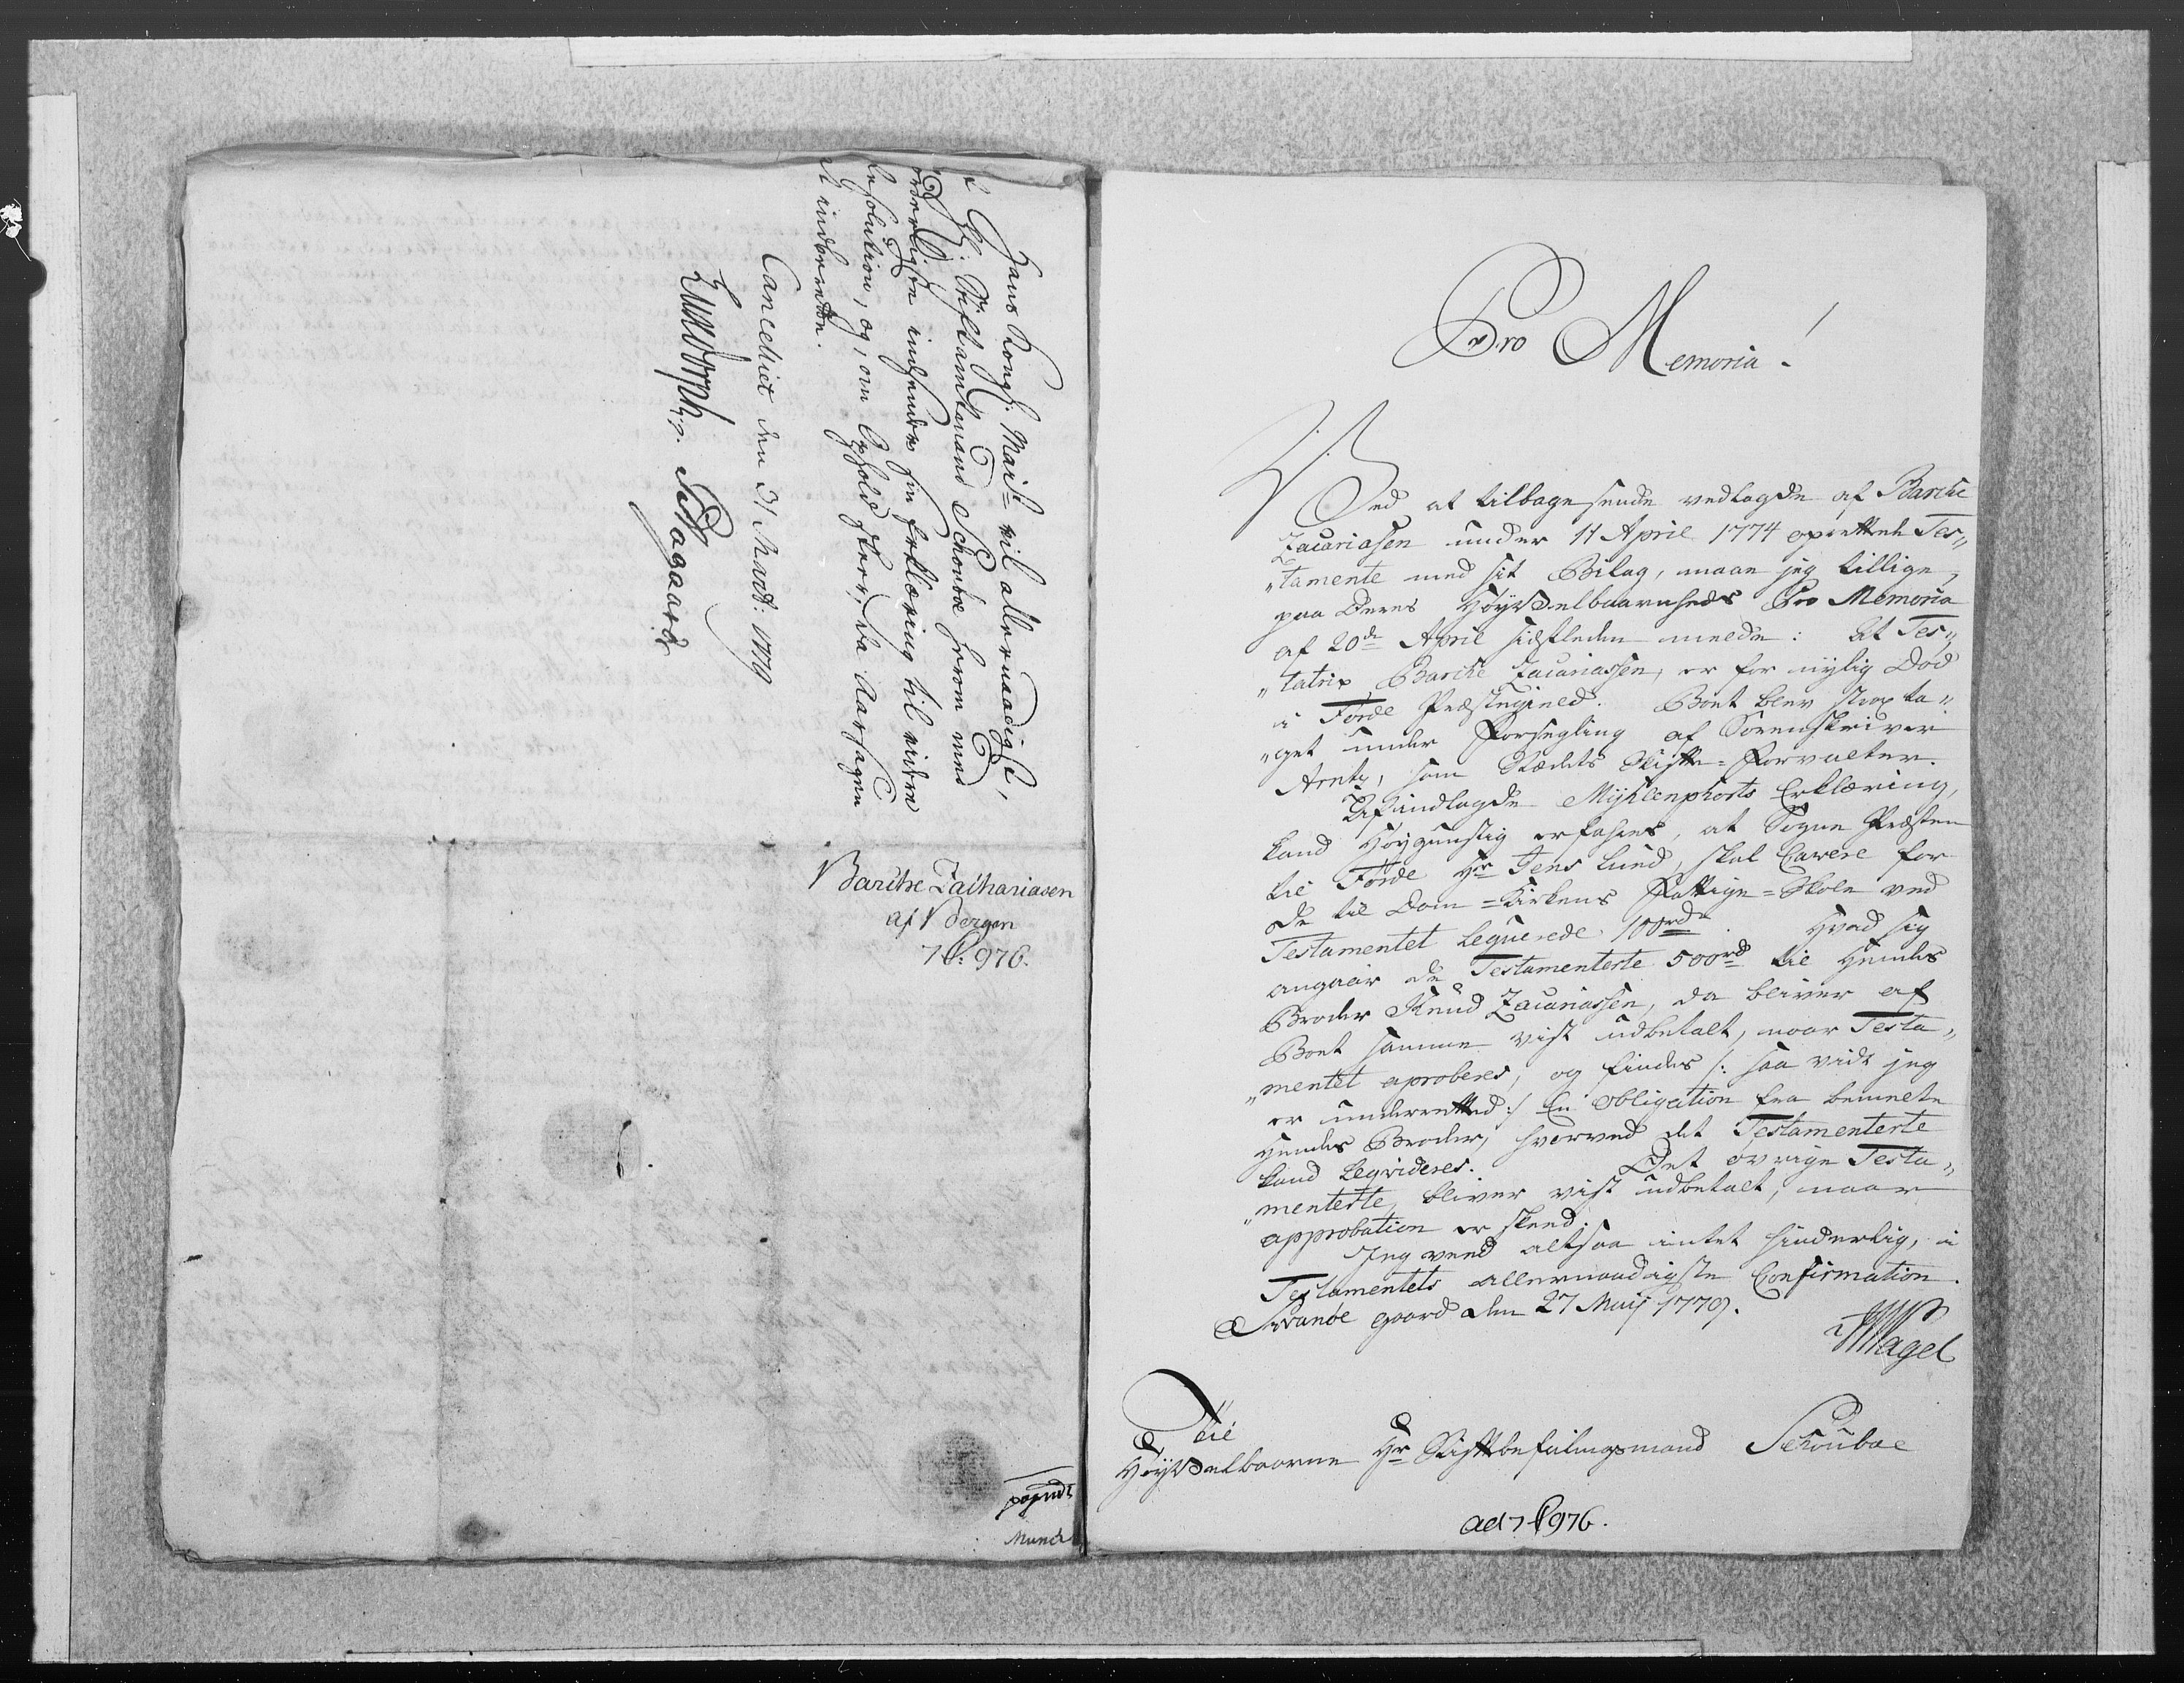 Hans Kongl: Mait= vil allernaadigst,
at Hr: Stiftamtmand Schouboe herom med
forderligste indsender sin Erklæring til videre
Resolution, og, om Ophold skeer, da Aarsagen
at indberette.
Cancelliet den 31 Mart: 1779
Luxdorph. Aagaard
Barthe Zachariasen
af Bergen
7 P: 976.
Munch
Pro Memoria!
Ved at tilbagesende vedlagde af Barthe
Zacariasen under 11 April 1774 oprettede Tes„
„tamente med sit Bilag, maae jeg tillige,
paa Deres HøyVelbaarenheds Pro Memoria
af 20de April sidstleden melde: At Tes„
„tatrix Barthe Zacariassen, er for nylig Død
i Førde Præstegield. Boet blev strax ta„
„get under Forsegling af Sorenskriver
Arentz, som Stædets Skifte=Forvalter.
Af indlagde Myhlenphorts Erklæring,
kand Høygunstig erfahres, at Sogne Præsten
til Førde Hr Jens Lund, skal Cavere for
de til Dom=Kirkens Fattige=Skole ved
Testamentet Leguerede 100rd. Hvad sig
angaar de Testamenterte 500rd til Hendes
Broder Knud Zacariassen, da bliver af
Boet samme vist udbetalt, naar Testa„
„mentet aproberes, og findes /: saa vidt jeg
er underretted :/ En Obligation fra bemelte
Hendes Broder, hvorved det Testamenterte
kand Leqvideres. Det øvrige Testa„
„menterte, bliver vist udbetalt, naar
approbation er skeed.
Jeg veed altsaa intet hinderlig, i
Testamentets allernaadigste Confirmation.
Svanøe gaard den 27 Maij 1779.
Nagel
Til
HøyVelbaarne Hr Stiftbefalingsmand Schouboe
ad 7 P 976.